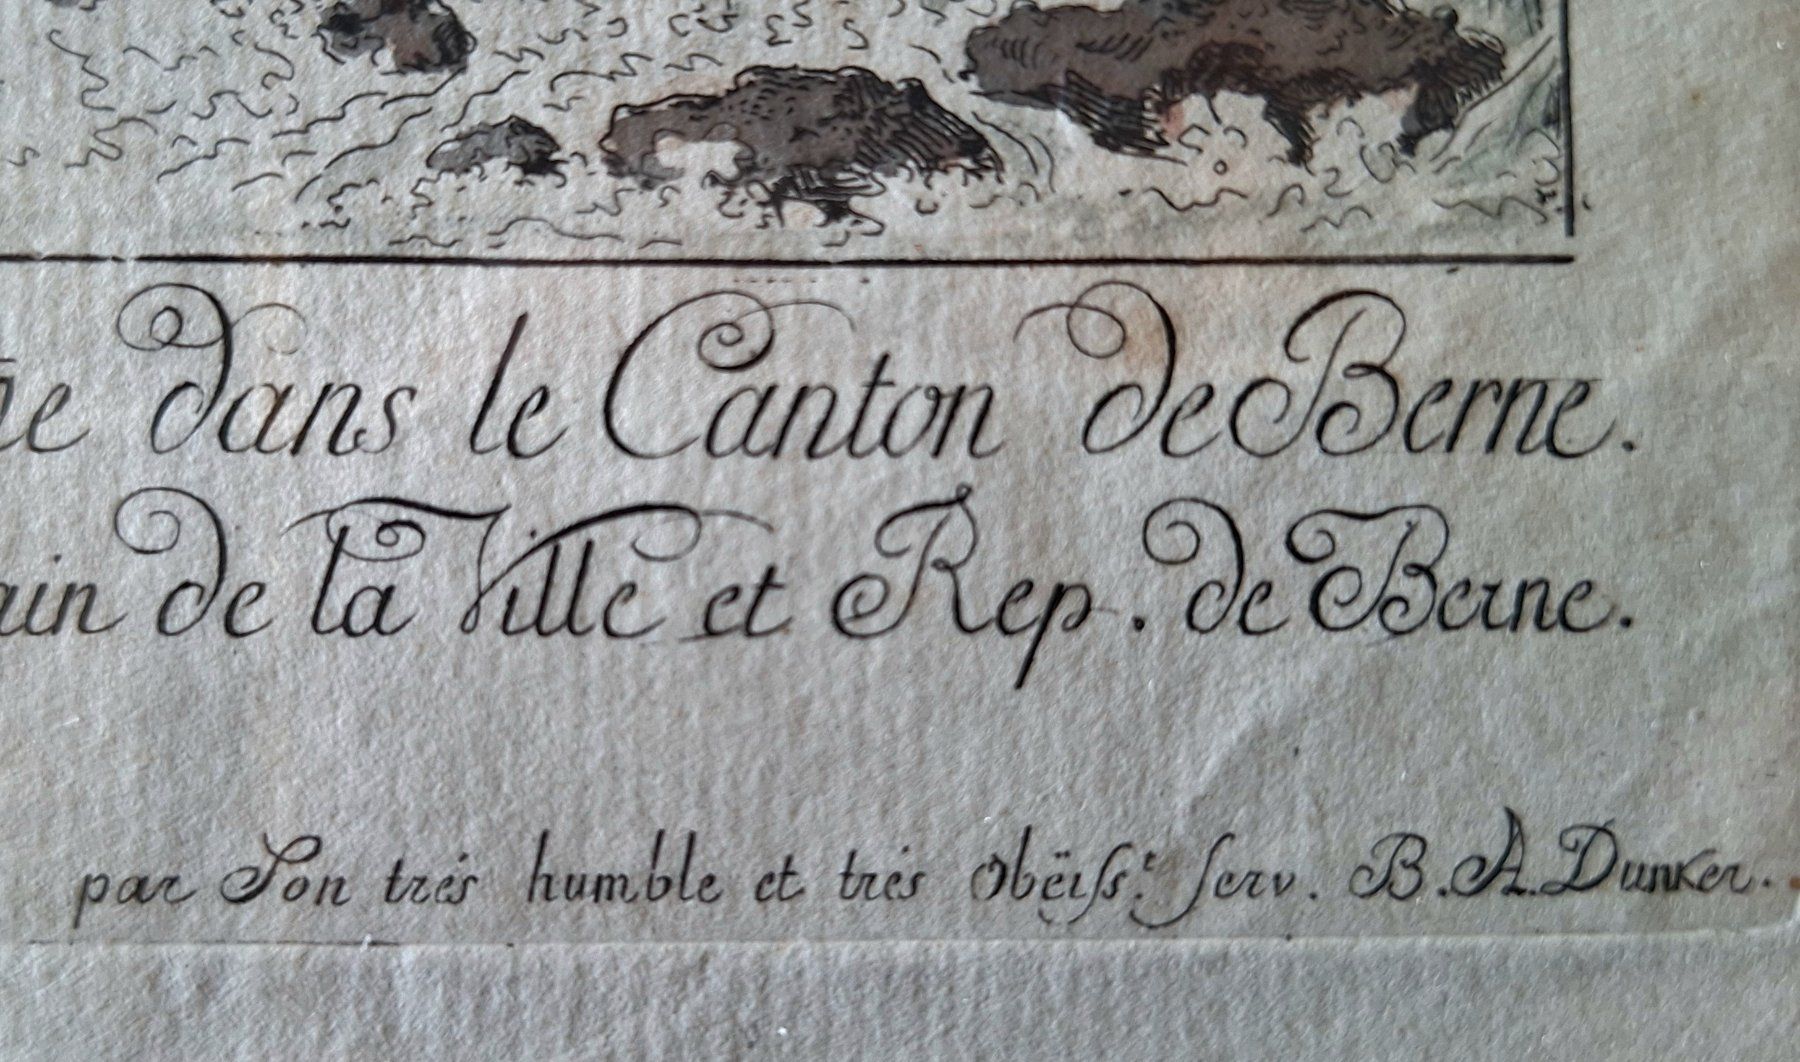 dans le Canton de Berne.
de la Ville et Rep. de Berne.
par Son trés humble et trés Obëiſs.t ſerv. B. A. Dunker.